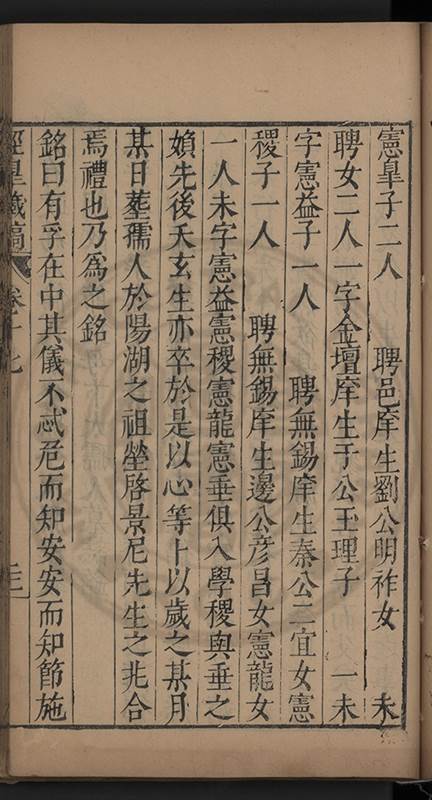 憲臯子二人　聘邑庠生劉公明祚女　未
聘女二人一字金壇庠生于公玉理子　一未
字憲益子一人　聘無錫庠生秦公二宜女憲
稷子一人　聘無錫庠生邊公彥昌女憲龍女
一人未字憲益憲稷憲龍憲垂俱入學稷與垂之
媍先後夭玄生亦卒於是以心等卜以歲之某月
某日塟孺人於陽湖之祖塋啓景尼先生之兆合
焉禮也乃為之銘
銘曰有孚在中其儀不忒危而知安安而知節施
經臯臧稿　卷十七